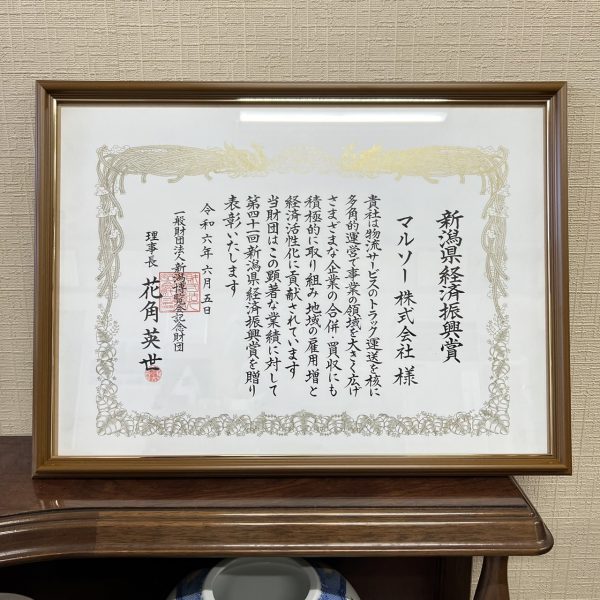 新潟県経済振興賞
マルソー株式会社 様
貴社は物流サービスのトラック運送を核に
多角的運営で事業の領域を大きく広げ
さまざまな企業の合併・買収にも
積極的に取り組み地域の雇用増と
経済活性化に貢献されています
当財団はこの顕著な業績に対して
第四十一回新潟県経済振興賞を贈り
表彰いたします
令和六年六月五日
一般財団法人新潟博覧会記念財団
理事長 花角英世